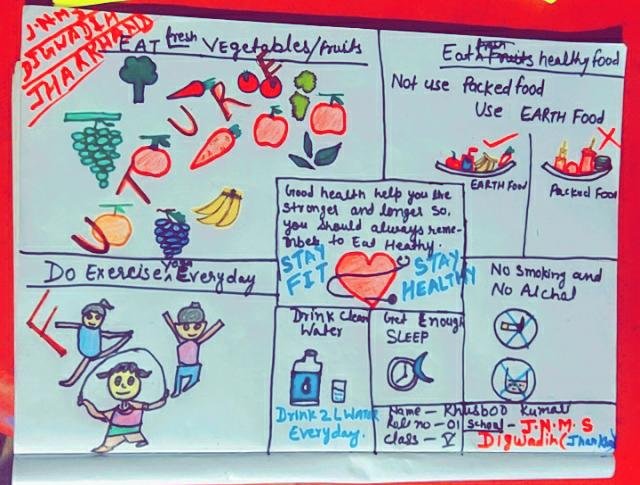 J.N.M.S
DIGWADIH
JHARKHAND
EAT fresh Vegetables/fruits
FUTURE
Eat fresh Fruits healthy food
Not use Packed food
Use EARTH Food
EARTH Food
Packed Food
Good health help you live
stronger and longer so,
you should always reme-
mber to Eat Heathy.
STAY
FIT
STAY
HEALTHY
Do Exercise, yoga Everyday
Drink Clean
Water
Drink 2L WATER
Everyday.
Get Enough
SLEEP
No Smoking and
No Alchal
Name - Khusboo Kumari
Roll no - 01
Class - V
School - J.N.M.S
Digwadih(